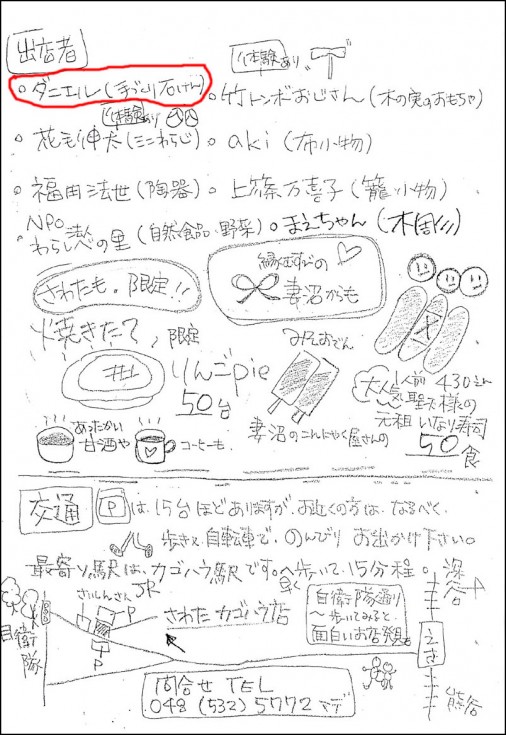 出店者
体験あり
。ダニエル(手づくり石けん)
。竹トンボおじさん(木の実のおもちゃ)
体験あり
。花毛伸太(ミニわらじ)
。aki(布小物)
。福田法世(陶器)
。上篠万喜子(籠小物)
NPO法人
。わらしべの里(自然食品・野菜)
。まえちゃん(木周り)
さわたも。限定!!
縁むすびの
妻沼からも
焼きたて、限定
りんごpie
50台
みそおでん
妻沼のこんにゃく屋さんの
大人気
一人前 430えん
聖天様の
元祖いなり寿司
50食
あったかい
甘酒や
コーヒーも
交通
Pは、15台ほどありますが、お近くの方は、なるべく
歩きや自転車で、のんびりお出かけ下さい。
最寄り駅は、JRカゴハラ駅です。歩いて、15分程。
さいしんさん
P
さわたカゴハラ店
P
自衛隊
自衛隊通り
〜歩いてみると
面白いお店発見
深谷
えき
熊谷
問合せ TEL
048 (532) 5772 マデ